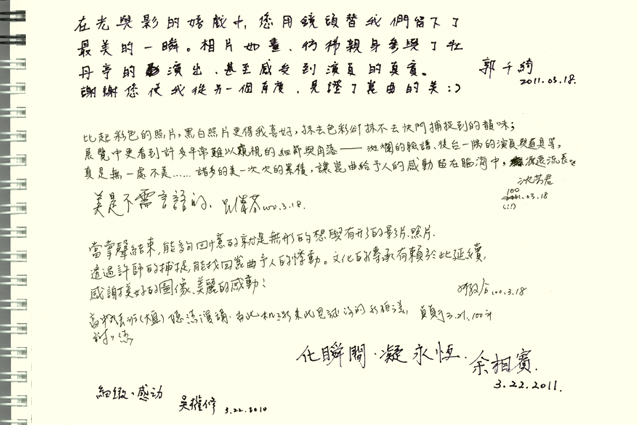 在光與影的嬉戲中,您用鏡頭替我們留下了
最美的一瞬。相片如畫,彷彿親身參與了牡
丹亭的演出,甚至感受到演員的真實。
謝謝您使我從另一個角度,見證了崑曲的美:)
郭千綺
2011.03.18.
比起彩色的照片,黑白照片更得我喜好,抹去色彩卻抹不去快門捕捉到的韻味;
展覽中更看到許多平常難以觀視的細節與角落——斑斕的臉譜、後台一隅的演員與道具等,
真是無一處不美……諸多的美一次次的累積,讓崑曲給予人的感動留在腦海中,
100
03.18
美是不需言語的.
100.3.18.
當掌聲結束,能夠回憶的就是無形的想與有形的影片.照片.
透過許師的捕捉,能找回崑曲予人的悸動。文化的傳承有賴於此延續,
感謝美好的圖像、美麗的感動!
100.3.18
化瞬間·凝永恆.
余相賓.
3.22.2011.
細緻·感动
吳維修 3.22.2010